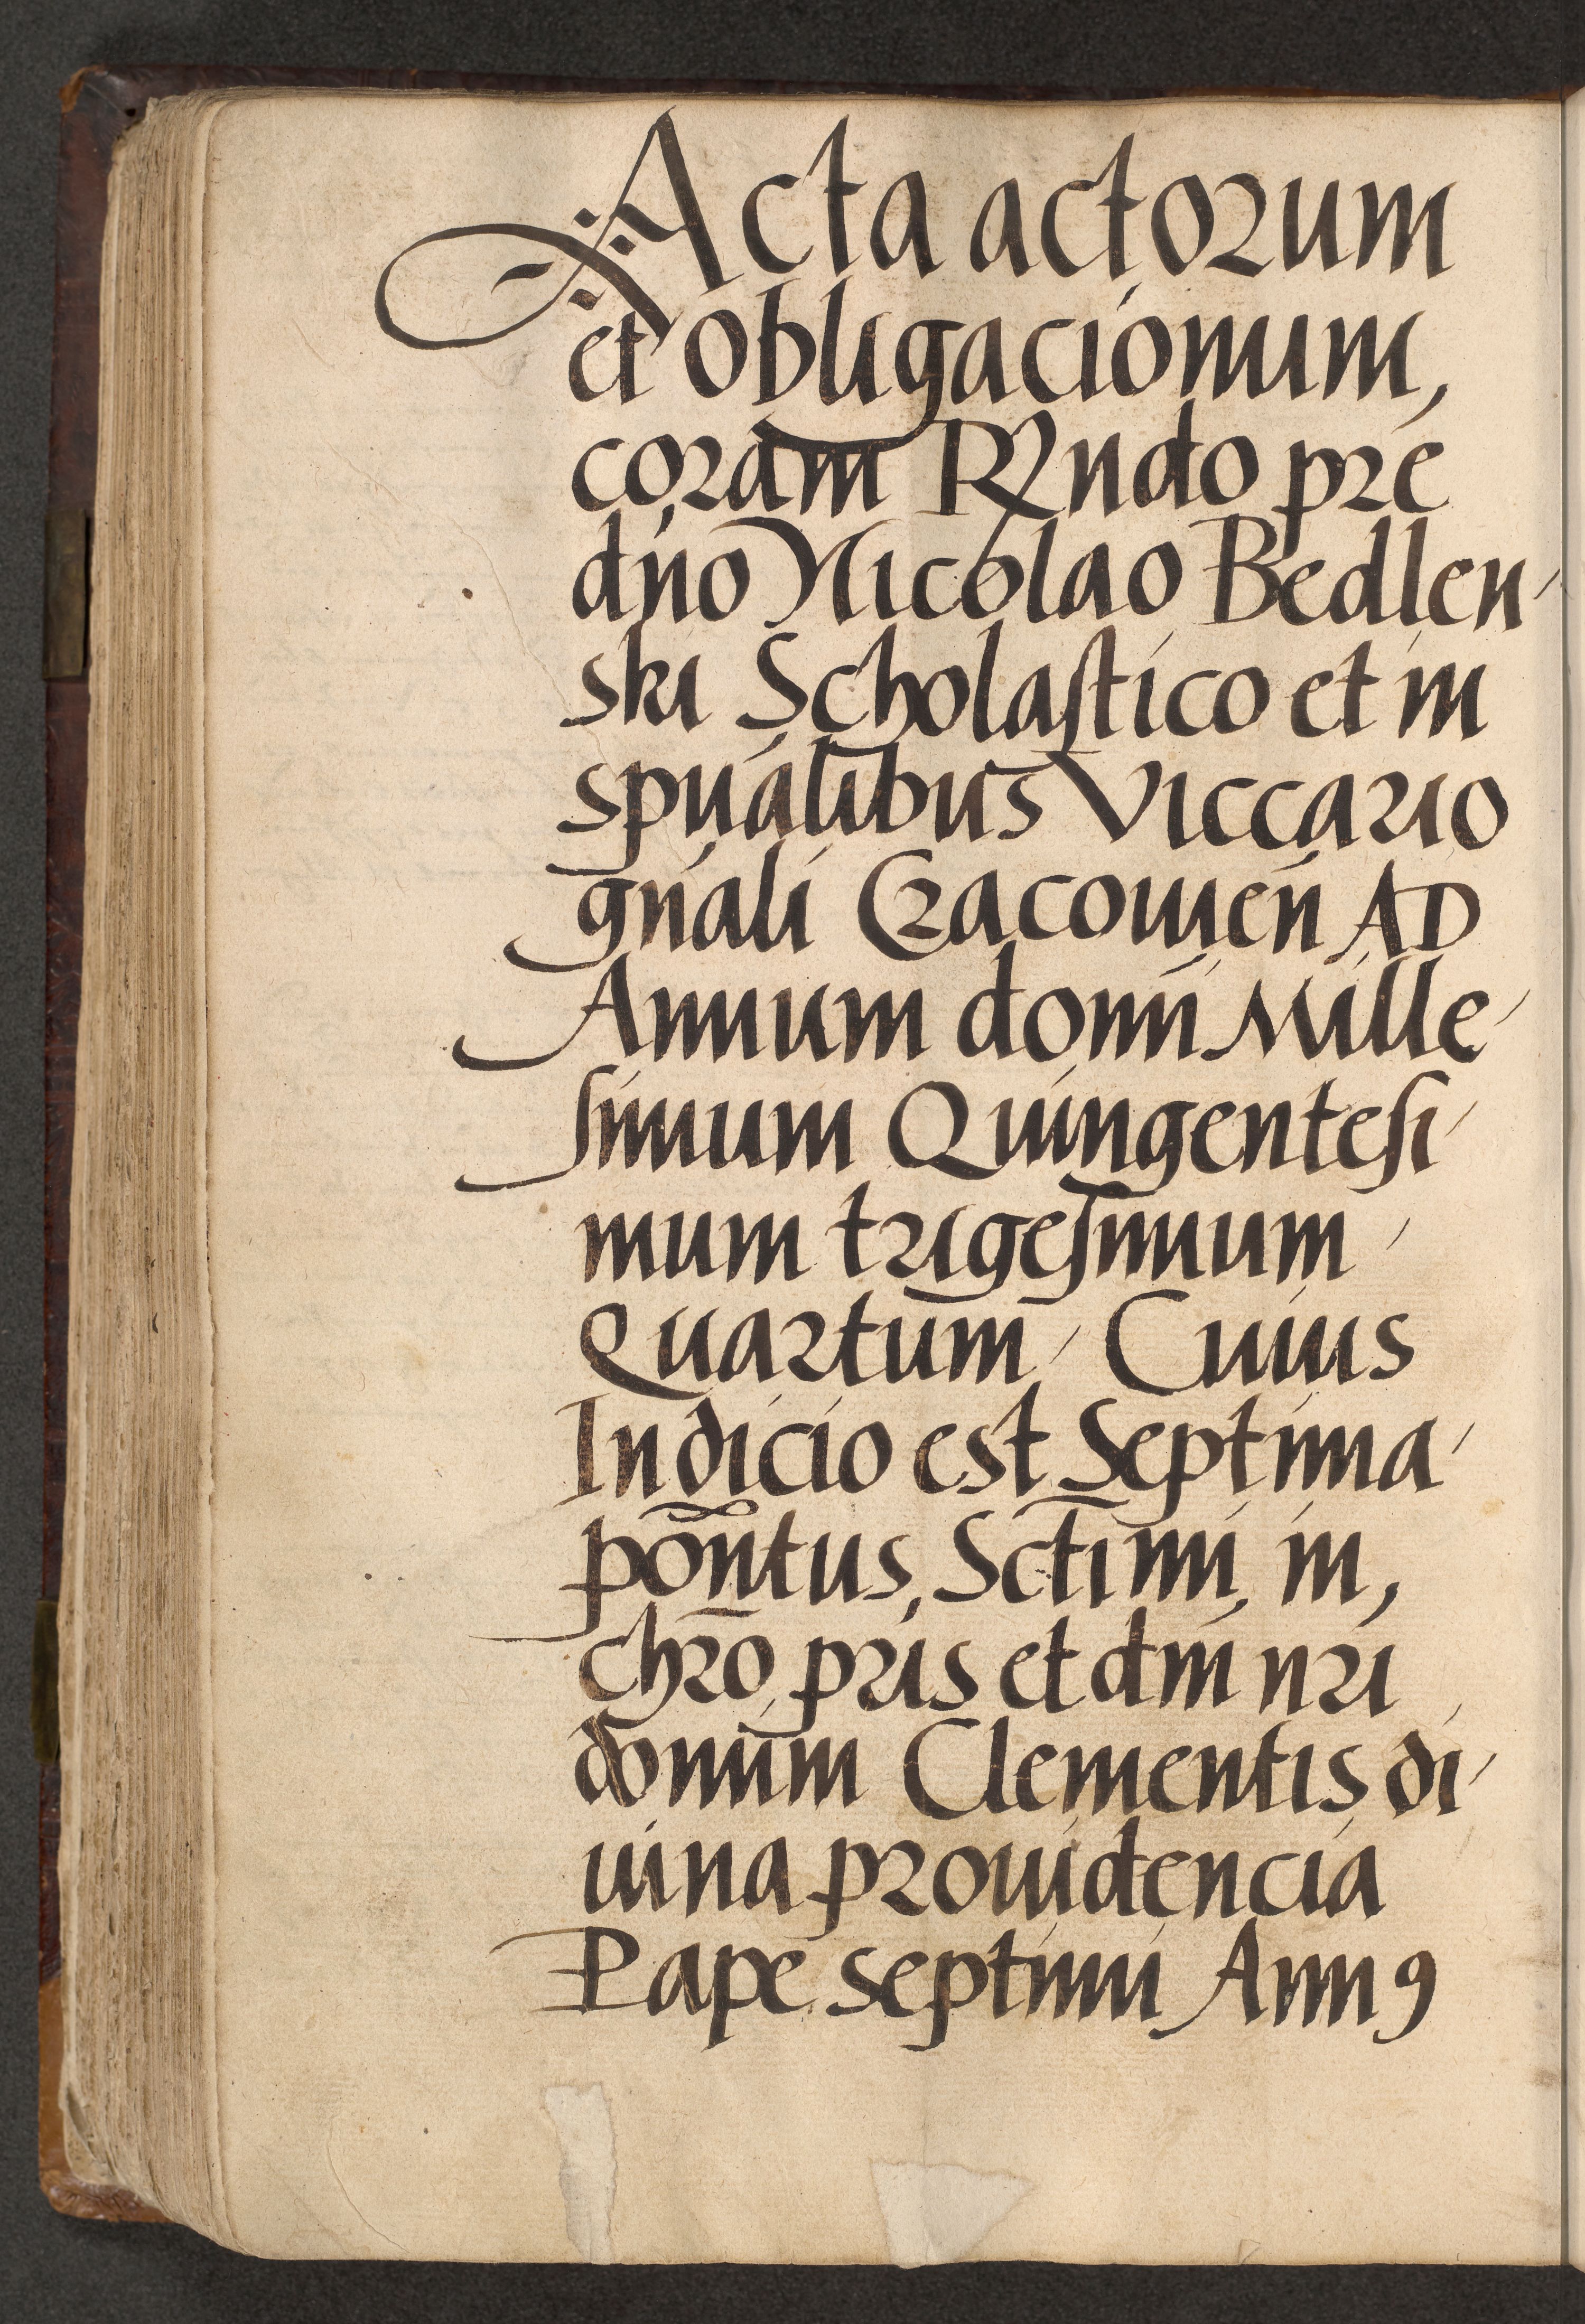 Acta actorum
et obligacionum,
coram Rndo pre
dno Nicolao Bedlen-
ski Scholastico et in
spualibus Viccario
gnali Cracouien AD
Annum domi Mille-
simum Quingentesi-
mum trigesimum
Quartum, Cuius
Indicio est Septima
pontus, Sctimi in,
chro pris et dni nri
domim Clementis di-
uina prouidencia
Pape septimi Ann9